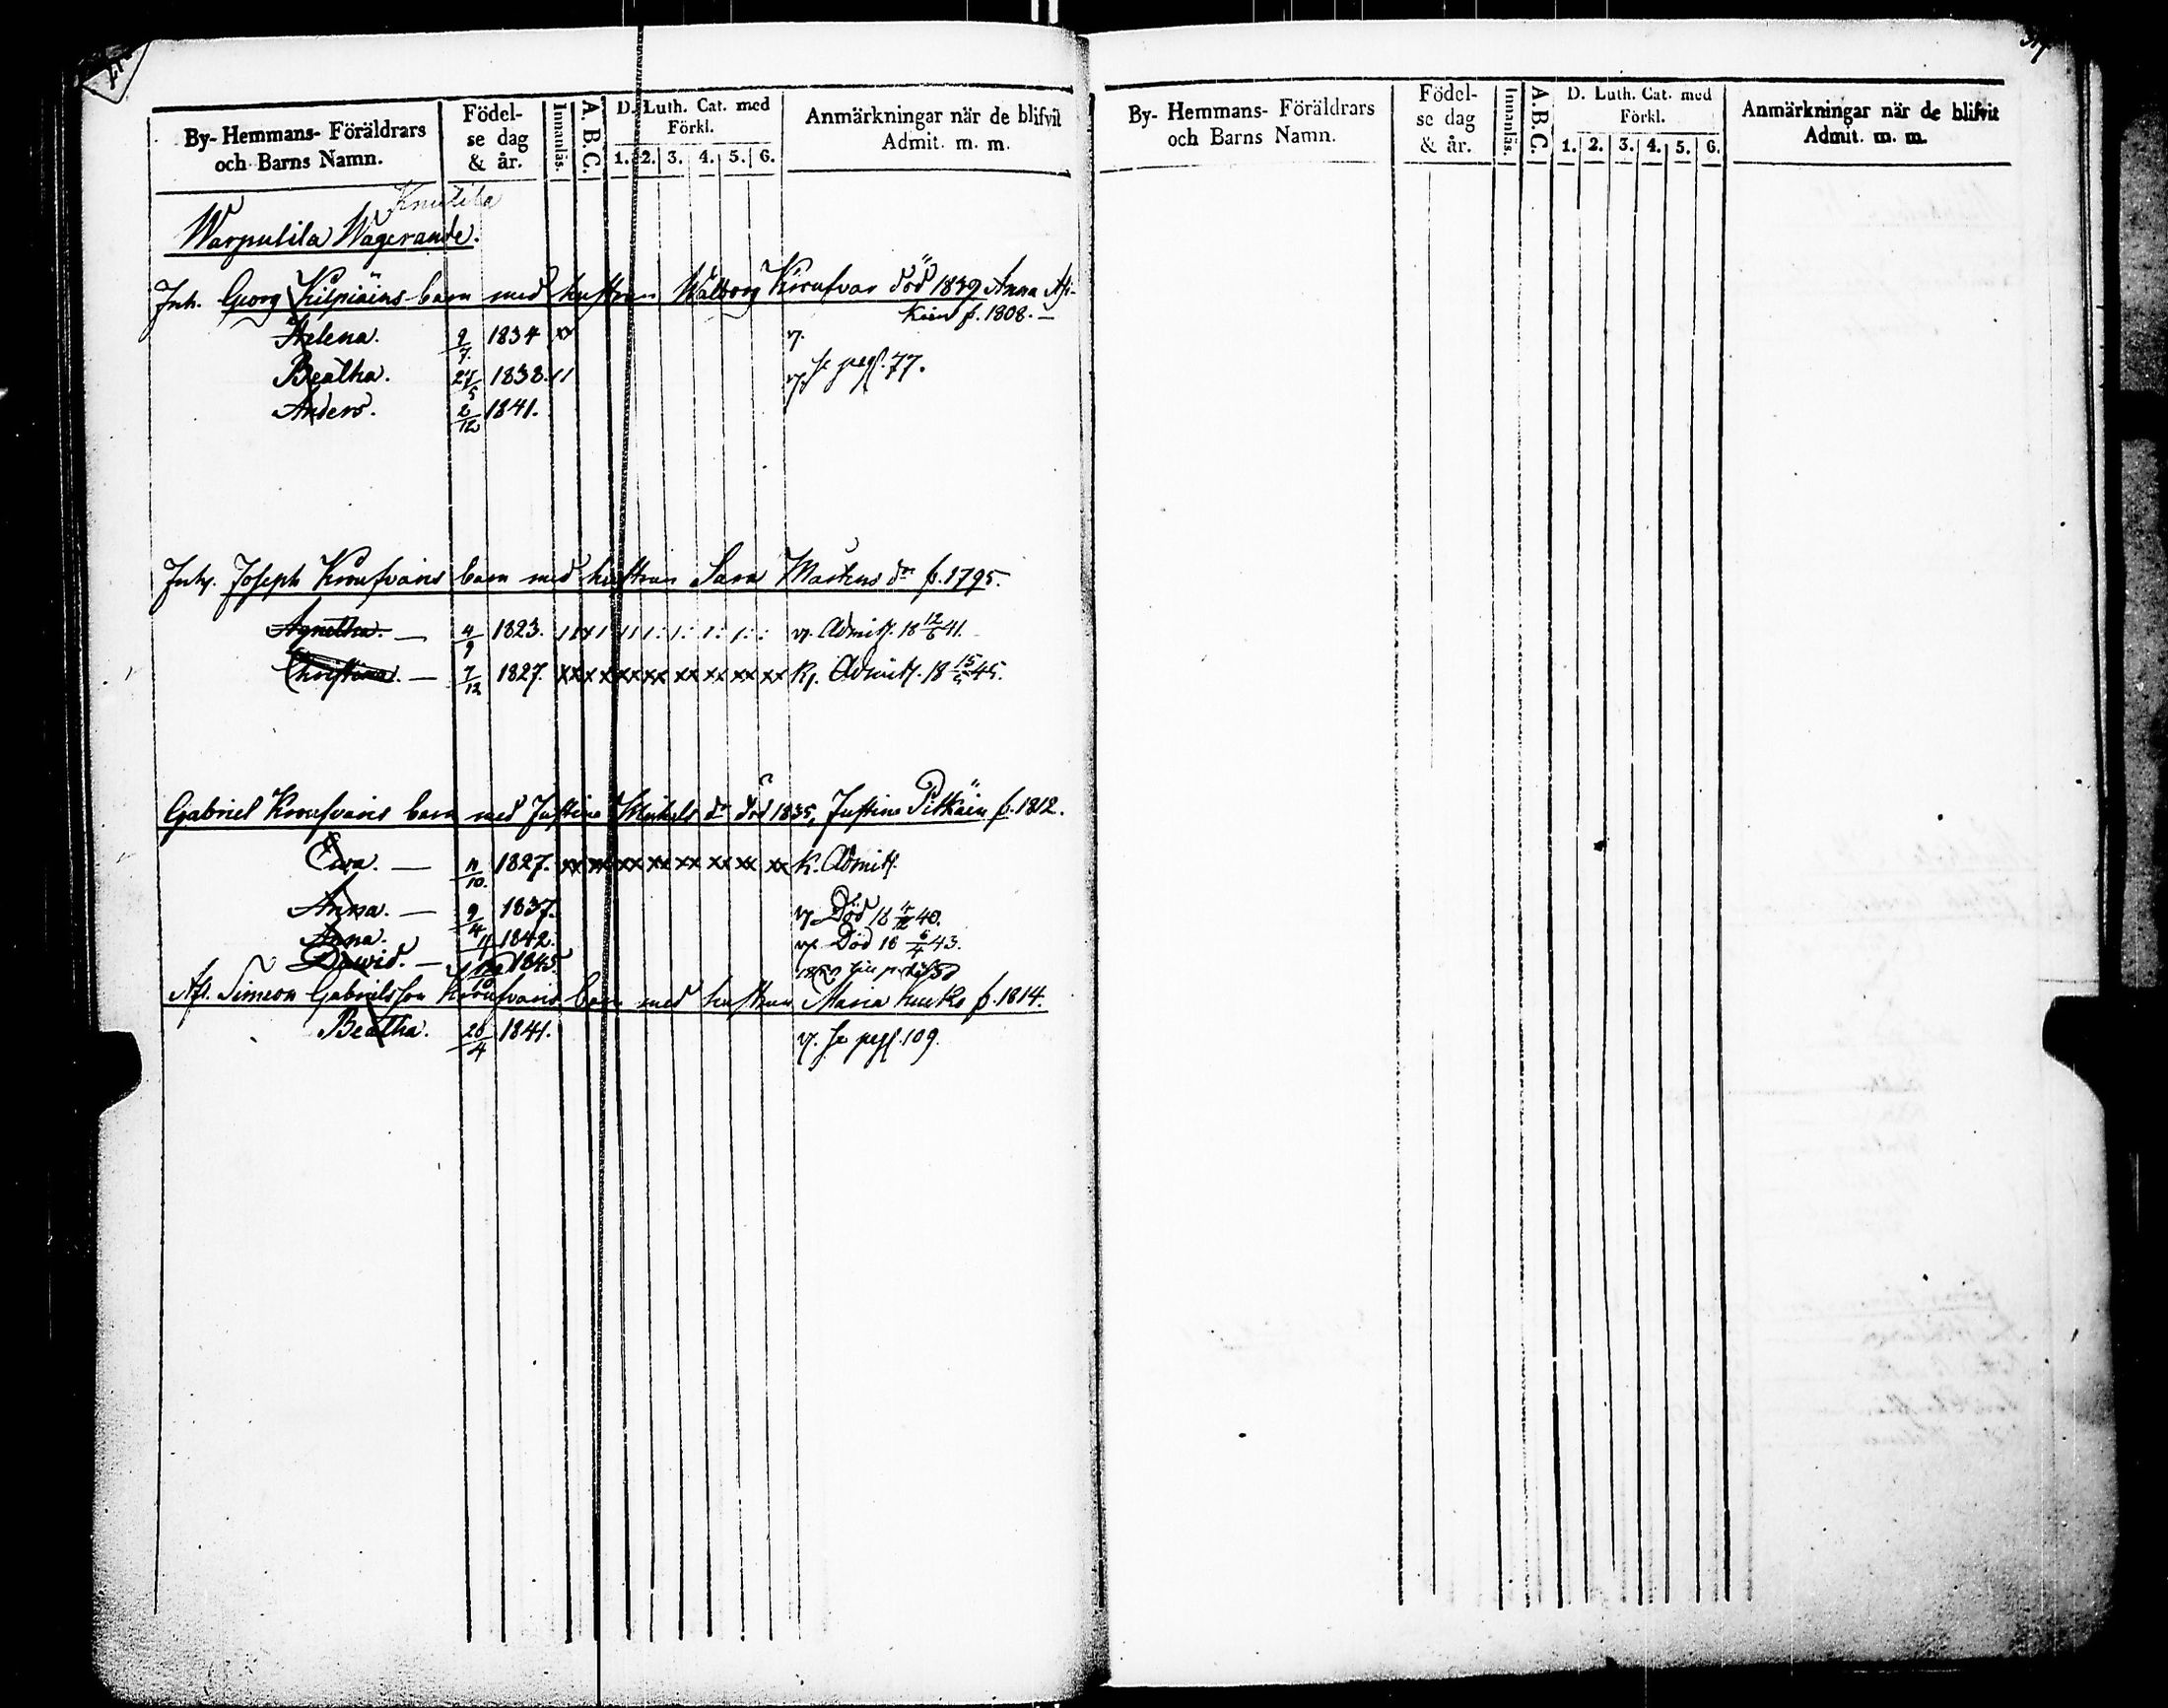 By- Hemmans- Föräldrars
och Barns Namn.
Födel-
se dag
& år.
Innanläs.
A. B. C.
D. Luth. Cat. med
Förkl.
1. 2. 3. 4. 5. 6.
Anmärkningar när de blifvit
Admit. m. m.
Knutila
Warpulila Wagerande.
Inh. Georg Kilpiäins barn med hustrun Walborg död 1839 Anna
f. 1808. —
Helena. 9/7 1834 v.
Beatha. 24/5 1838. 11 v. se pag. 77.
Anders. 2/12 1841.
Inh. Joseph barn med hustrun Sara Mårtens dr f. 1795.
Agnetha. — 4/9 1823. v. Admitt. 18 12/6 41.
Christina. — 7/12 1827. xx x x xx xx xx xx xx xx Admitt. 18 15/6 45.
Gabriel barn med Justina Michels dr död 1835, Justina Pitkäin f. 1812.
Ewa. — 11/10 1827. xx xx xx xx xx xx xx xx K. Admitt.
Anna. — 9/4 1837. v. Död 18 40.
Anna. 1842. v. Död 18 6/4 43.
Dawid. — 1845.
Afl. Simeon Gabrielsson barn med hustrun Maria f. 1814.
Beatha. 26/4 1841. v. se pag. 109.
By- Hemmans- Föräldrars
och Barns Namn.
Födel-
se dag
& år.
Innanläs.
A. B. C.
D. Luth. Cat. med
Förkl.
1. 2. 3. 4. 5. 6.
Anmärkningar när de blifvit
Admit. m. m.